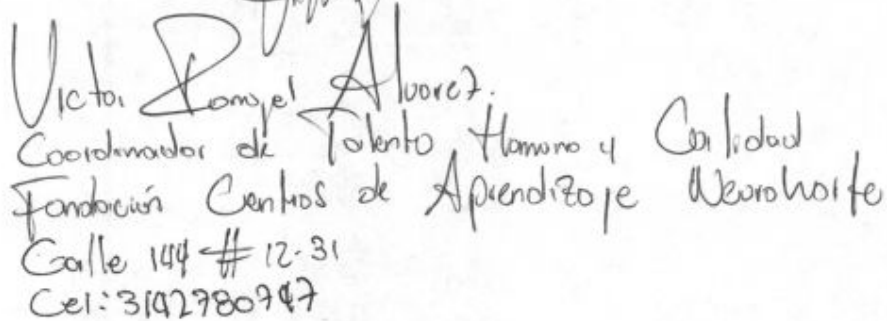 Victor Rangel Alvarez.
Coordinador de Talento Humano y Calidad
Fundación Centros de Aprendizaje Neurohorte
Calle 144 # 12-31
Cel: 3142780747